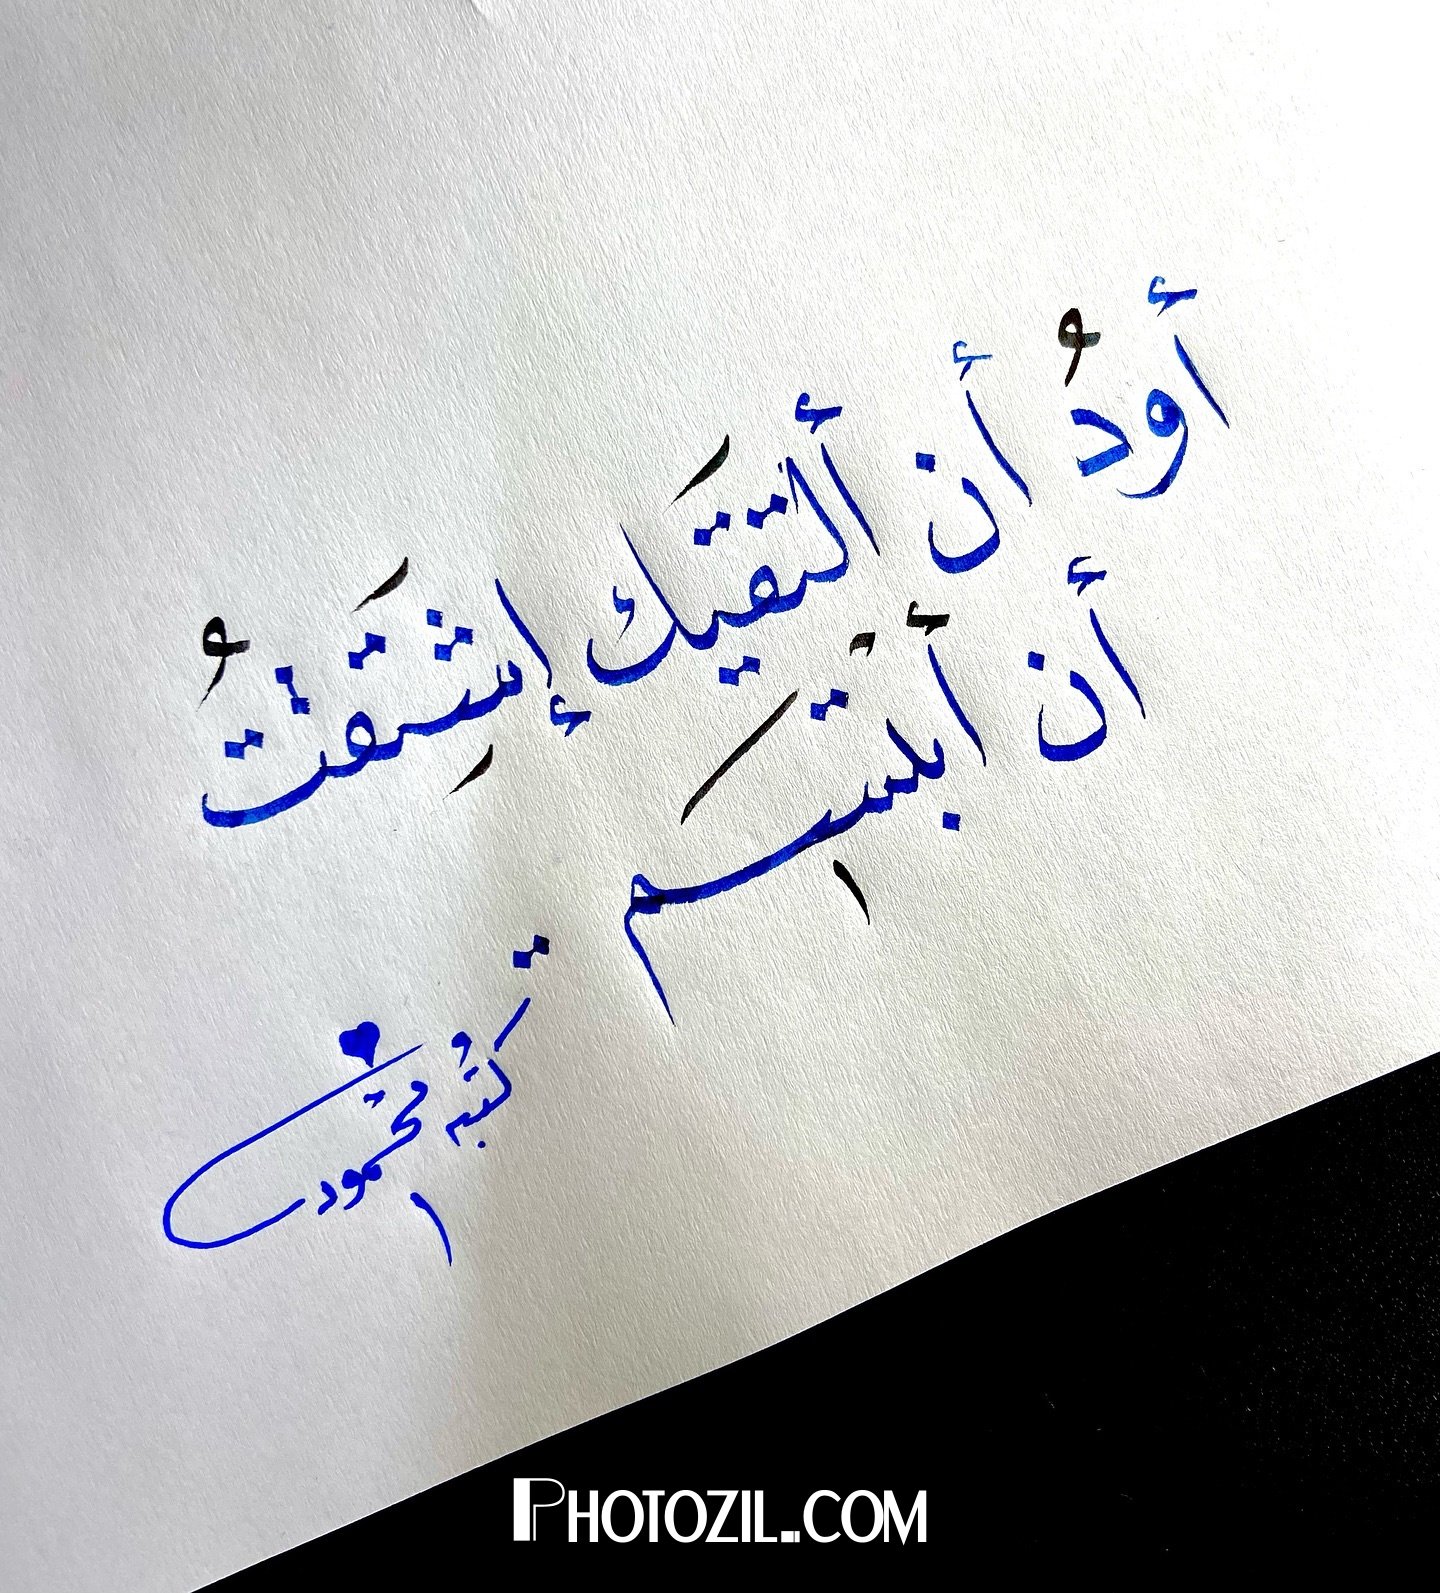 أودُ أن ألتقيَك إشتَقتُ
أن أبتسم
كتبهُ محمود
PHOTOZIL.COM